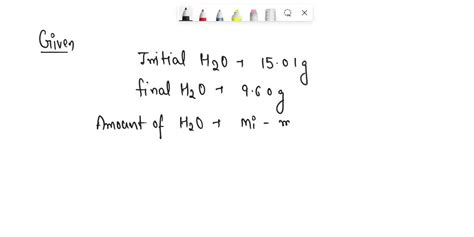 Given
Initial H₂O → 15.01g
final H₂O → 9.60g
Amount of H₂O → mi - m